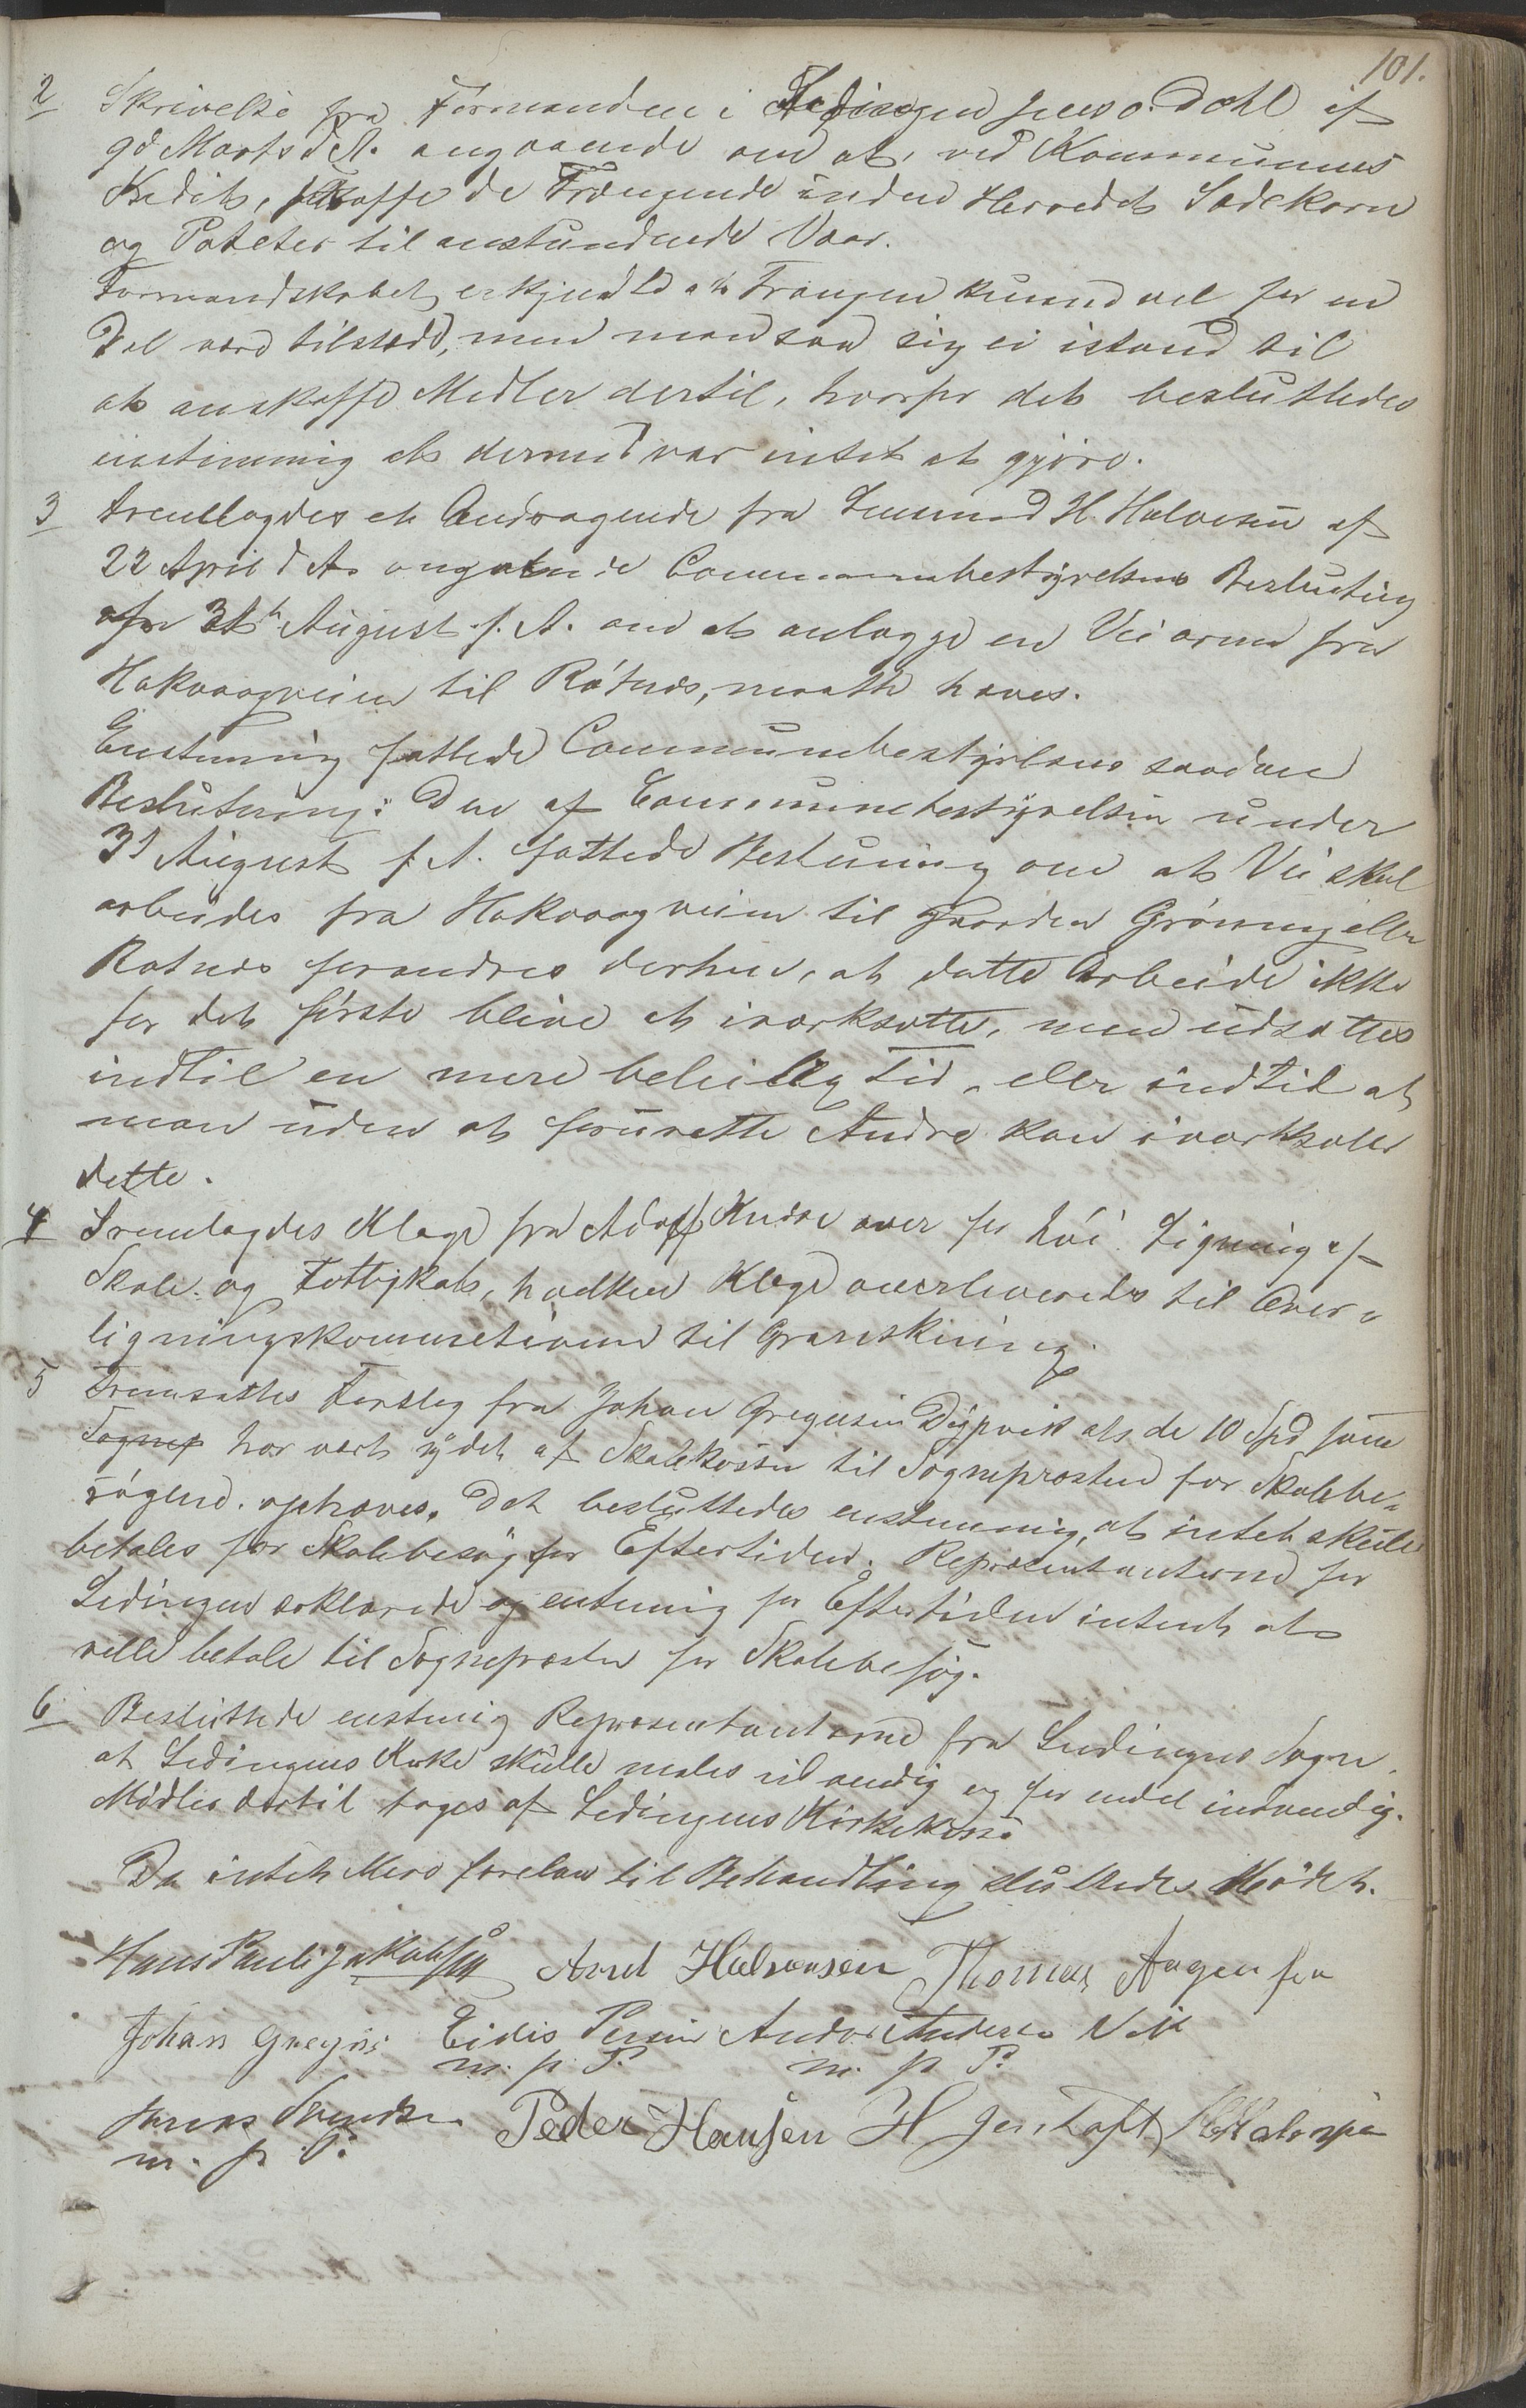 101.
2 Skrivelse fra Formanden i Lødingen Jens O. Dahl af
9d Marts d. A. angaaende om at, ved Kommunens
Kredit, skaffe de Trængende inden Herredet Sædekorn
og Poteter til anstundende Vaar.
Formandskabet erkjendte at Trangen kunde vel for en
Del være tilstede, men man saa sig ei istand til
at anskaffe Midler dertil, hvorfor det besluttedes
enstemmig at dermed var intet at gjøre.
3 Fremlagdes et Andragende fra Lensmand H. Halvesen af
22 April d. A. angaaende Communebestyrelsens Beslutning
af 31te August f. A. om at anlægge en Vei arm fra
Hakvaagveien til Rötnes, maatte hæves.
Enstemmig fattede Communebestyrelsens saadan
Beslutning: Den af Communebestyrelsen under
31 August f. A. fattede Beslutning om at Vei skal
arbeides fra Hakvaagveien til Gaarden Grønning eller
Rotnes forandres derhen, at dette Arbeide ikke
for det første blive at iværksætte, men udsættes
indtil en mere beleilig Tid, eller indtil at
man uden at forurette Andre kan iværksætte
dette.
4 Fremlagdes Klage fra Adolf Kudse over for høi Ligning af
Skole- og Fattigskat, hvilken Klage overleveredes til Over-
ligningskommitionen til Granskning.
5 Fremsattes Forslag fra Johan Gregusen Dypvik at de 10 Spd som
Sognep har vært ydet af Skolekassen til Sognepræsten for Skolebe-
søgene ophæves. Det besluttedes enstemmig, at intet skulde
betales for Skolebesøg for Eftertiden. Repræsentanterne for
Lødingen erklærede og entemig for Eftertiden intent at
ville betale til Sognepræsten for Skolebesøg.
6 Besluttede enstemig Repræsentanterne fra Lødingens Sogn,
at Lødingens Kirke skulle males udvendig og for endel indvendig.
Midler dertil tages af Lødingens Kirkekasse
Da intet Mere forelaa til Behandling sluttedes Mødet.
Hans Pauli Jakobsen Arnt Halvorsen Thomas Aagensen
Johan Gregus Eidis Persen Andor Andersen Vik
m. p. P. m. p. P.
Svendsen Peder Hansen H Jen. Toft Halvesen
m. p. P.